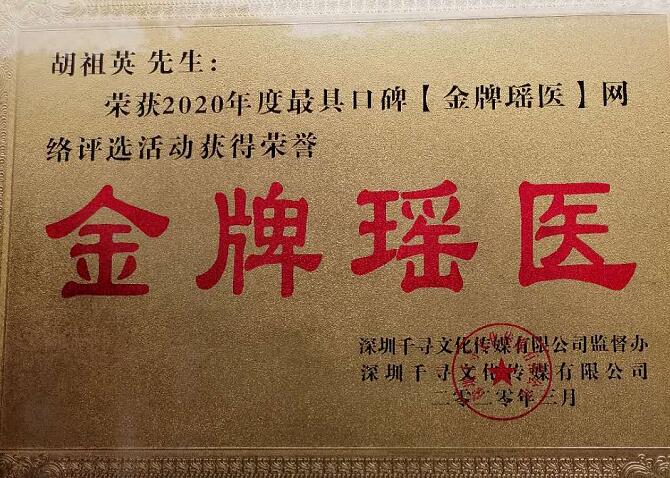 胡祖英 先生：
荣获2020年度最具口碑【金牌瑶医】网
络评选活动获得荣誉
金牌瑶医
深圳千寻文化传媒有限公司监督办
深圳千寻文化传媒有限公司
二零二零年三月